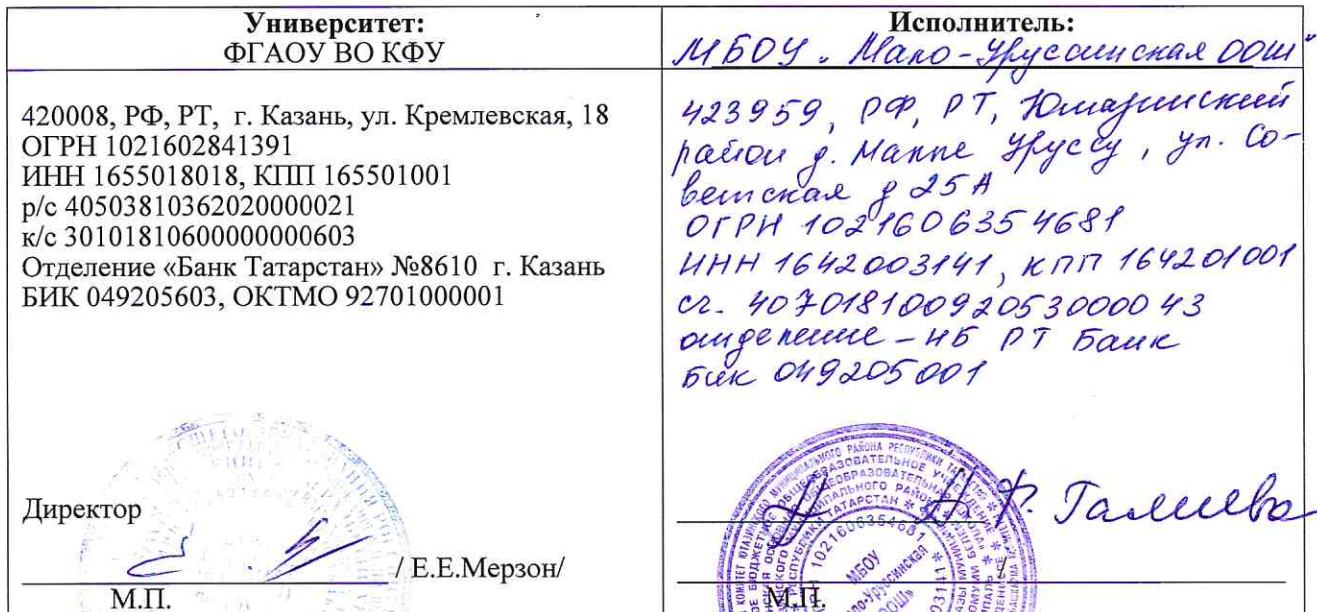 Университет:
ФГАОУ ВО КФУ
420008, РФ, РТ, г. Казань, ул. Кремлевская, 18
ОГРН 1021602841391
ИНН 1655018018, КПП 165501001
р/с 40503810362020000021
к/с 30101810600000000603
Отделение «Банк Татарстан» №8610 г. Казань
БИК 049205603, ОКТМО 92701000001
Директор
/ Е.Е.Мерзон/
М.П.
Исполнитель:
МБОУ "Мало-Уруссинская ООШ"
423959, РФ, РТ, Ютазинский
район д. Малые Уруссу, ул. Со-
ветская д 25А
ОГРН 1021606354681
ИНН 1642003141, КПП 164201001
сч. 40701810092053000043
отделение - НБ РТ Банк
Бик 049205001
А.Ф. Галиева
М.П.
1021606354681
МБОУ
ООШ»